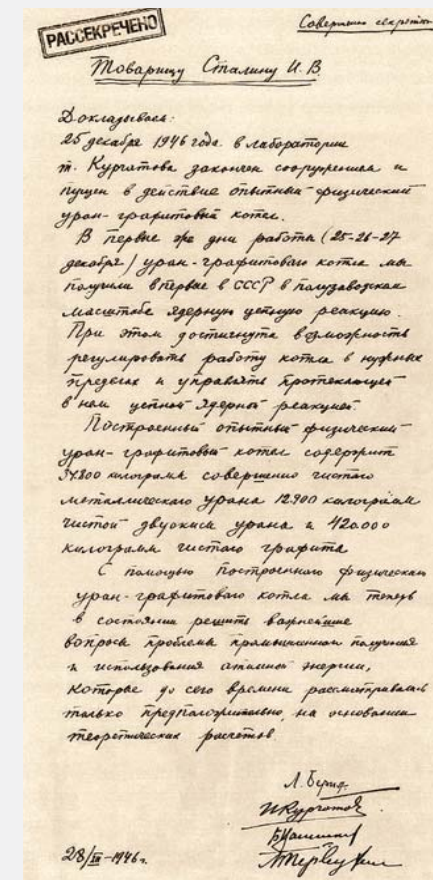 РАССЕКРЕЧЕНО
Совершенно секретно
Товарищу Сталину И. В.
Докладываем:
25 декабря 1946 года в лаборатории
т. Курчатова закончен сооружением и
пущен в действие опытный физический
уран-графитовый котел.
В первые же дни работы (25-26-27
декабря) уран-графитового котла мы
получили впервые в СССР в полузаводском
масштабе ядерную цепную реакцию.
При этом достигнута возможность
регулировать работу котла в нужных
пределах и управлять протекающей
в нем цепной ядерной реакцией.
Построенный опытный физический
уран-графитовый котел содержит
34.800 килограмм совершенно чистого
металлического урана 12.900 килограмм
чистой двуокиси урана и 420.000
килограмм чистого графита
С помощью построенного физического
уран-графитового котла мы теперь
в состоянии решить важнейшие
вопросы проблемы промышленного получения
и использования атомной энергии,
которые до сего времени рассматривались
только предположительно, на основании
теоретических расчетов
Л. Берия
И Курчатов
Б Ванников
М Первухин
28/XII-1946 г.